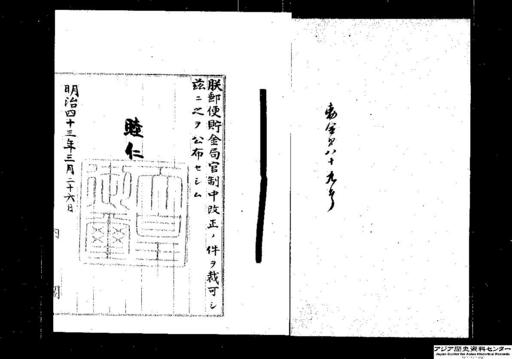 勅令第八十九号
朕郵便貯金局官制中改正ノ件ヲ裁可シ
茲ニ之ヲ公布セシム
睦仁
明治四十三年三月二十六日
内閣
アジア歴史資料センター
Japan Center for Asian Historical Records